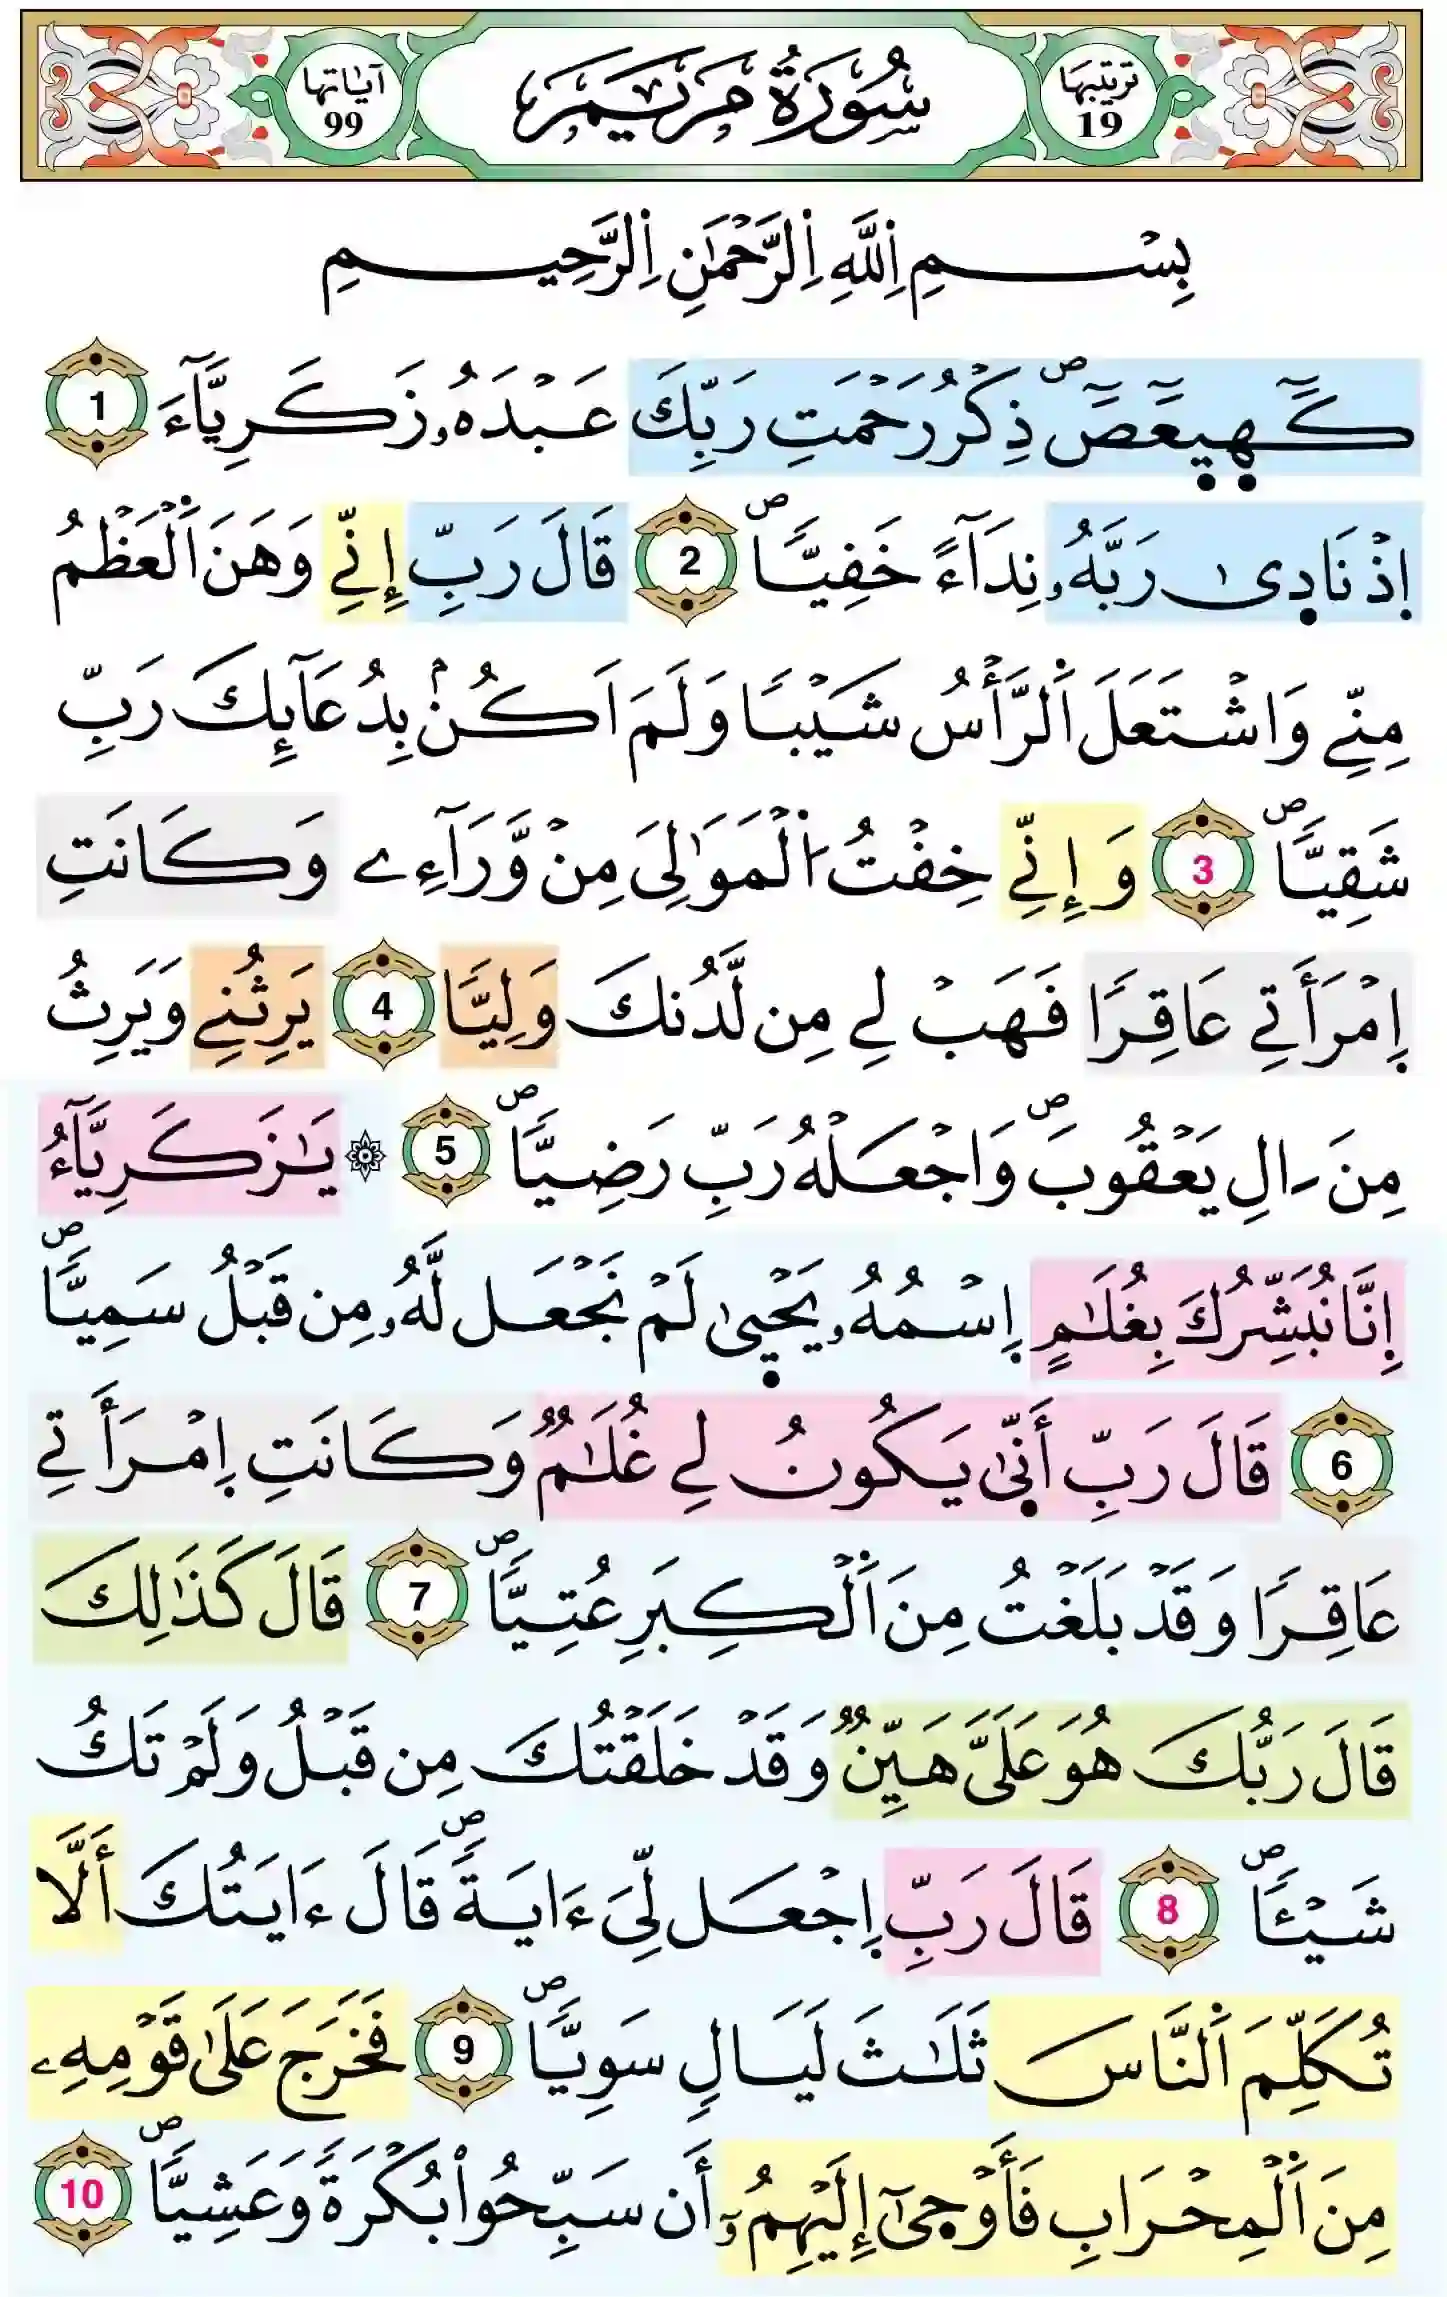 ترتيبها 19 سُورَةُ مَرْيَمَ آياتها 99
بِسْمِ اِ۬للَّهِ اِ۬لرَّحْمَٰنِ اِ۬لرَّحِيمِ
كَٓهَيَعَٓصَٓ ص ذِكْرُ رَحْمَتِ رَبِّكَ عَبْدَهُۥ زَكَرِيَّآءَ 1
اِذْ نَادِىٰ رَبَّهُۥ نِدَآءً خَفِيّٗا ص 2 قَالَ رَبِّ إِنِّے وَهَنَ اَ۬لْعَظْمُ
مِنِّے وَاشْتَعَلَ اَ۬لرَّأْسُ شَيْبٗا وَلَمَ اَكُنۢ بِدُعَآئِكَ رَبِّ
شَقِيّٗا ص 3 وَإِنِّے خِفْتُ اُ۬لْمَوَٰلِىَ مِنْ وَّرَآءِے وَكَانَتِ
اِمْرَأَتِے عَاقِرٗا فَهَبْ لِے مِن لَّدُنكَ وَلِيّٗا 4 يَرِثُنِے وَيَرِثُ
مِنَ اٰلِ يَعْقُوبَ ص وَاجْعَلْهُ رَبِّ رَضِيّٗا ص 5 ۞ يَٰزَكَرِيَّآءُ
اِنَّا نُبَشِّرُكَ بِغُلَٰمٍ اِسْمُهُۥ يَحْيِىٰ لَمْ نَجْعَل لَّهُۥ مِن قَبْلُ سَمِيّٗا ص
6 قَالَ رَبِّ أَنِّىٰ يَكُونُ لِے غُلَٰمٞ وَكَانَتِ اِمْرَأَتِے
عَاقِرٗا وَقَدْ بَلَغْتُ مِنَ اَ۬لْكِبَرِ عُتِيّٗا ص 7 قَالَ كَذَٰلِكَ
قَالَ رَبُّكَ هُوَ عَلَىَّ هَيِّنٞ وَقَدْ خَلَقْتُكَ مِن قَبْلُ وَلَمْ تَكُ
شَيْـٔٗا ص 8 قَالَ رَبِّ اِجْعَل لِّىَ ءَايَةٗ ص قَالَ ءَايَتُكَ أَلَّا
تُكَلِّمَ اَ۬لنَّاسَ ثَلَٰثَ لَيَالٖ سَوِيّٗا ص 9 فَخَرَجَ عَلَىٰ قَوْمِهِۦ
مِنَ اَ۬لْمِحْرَابِ فَأَوْحِىٰٓ إِلَيْهِمُۥٓ أَن سَبِّحُواْ بُكْرَةٗ وَعَشِيّٗا ص 10